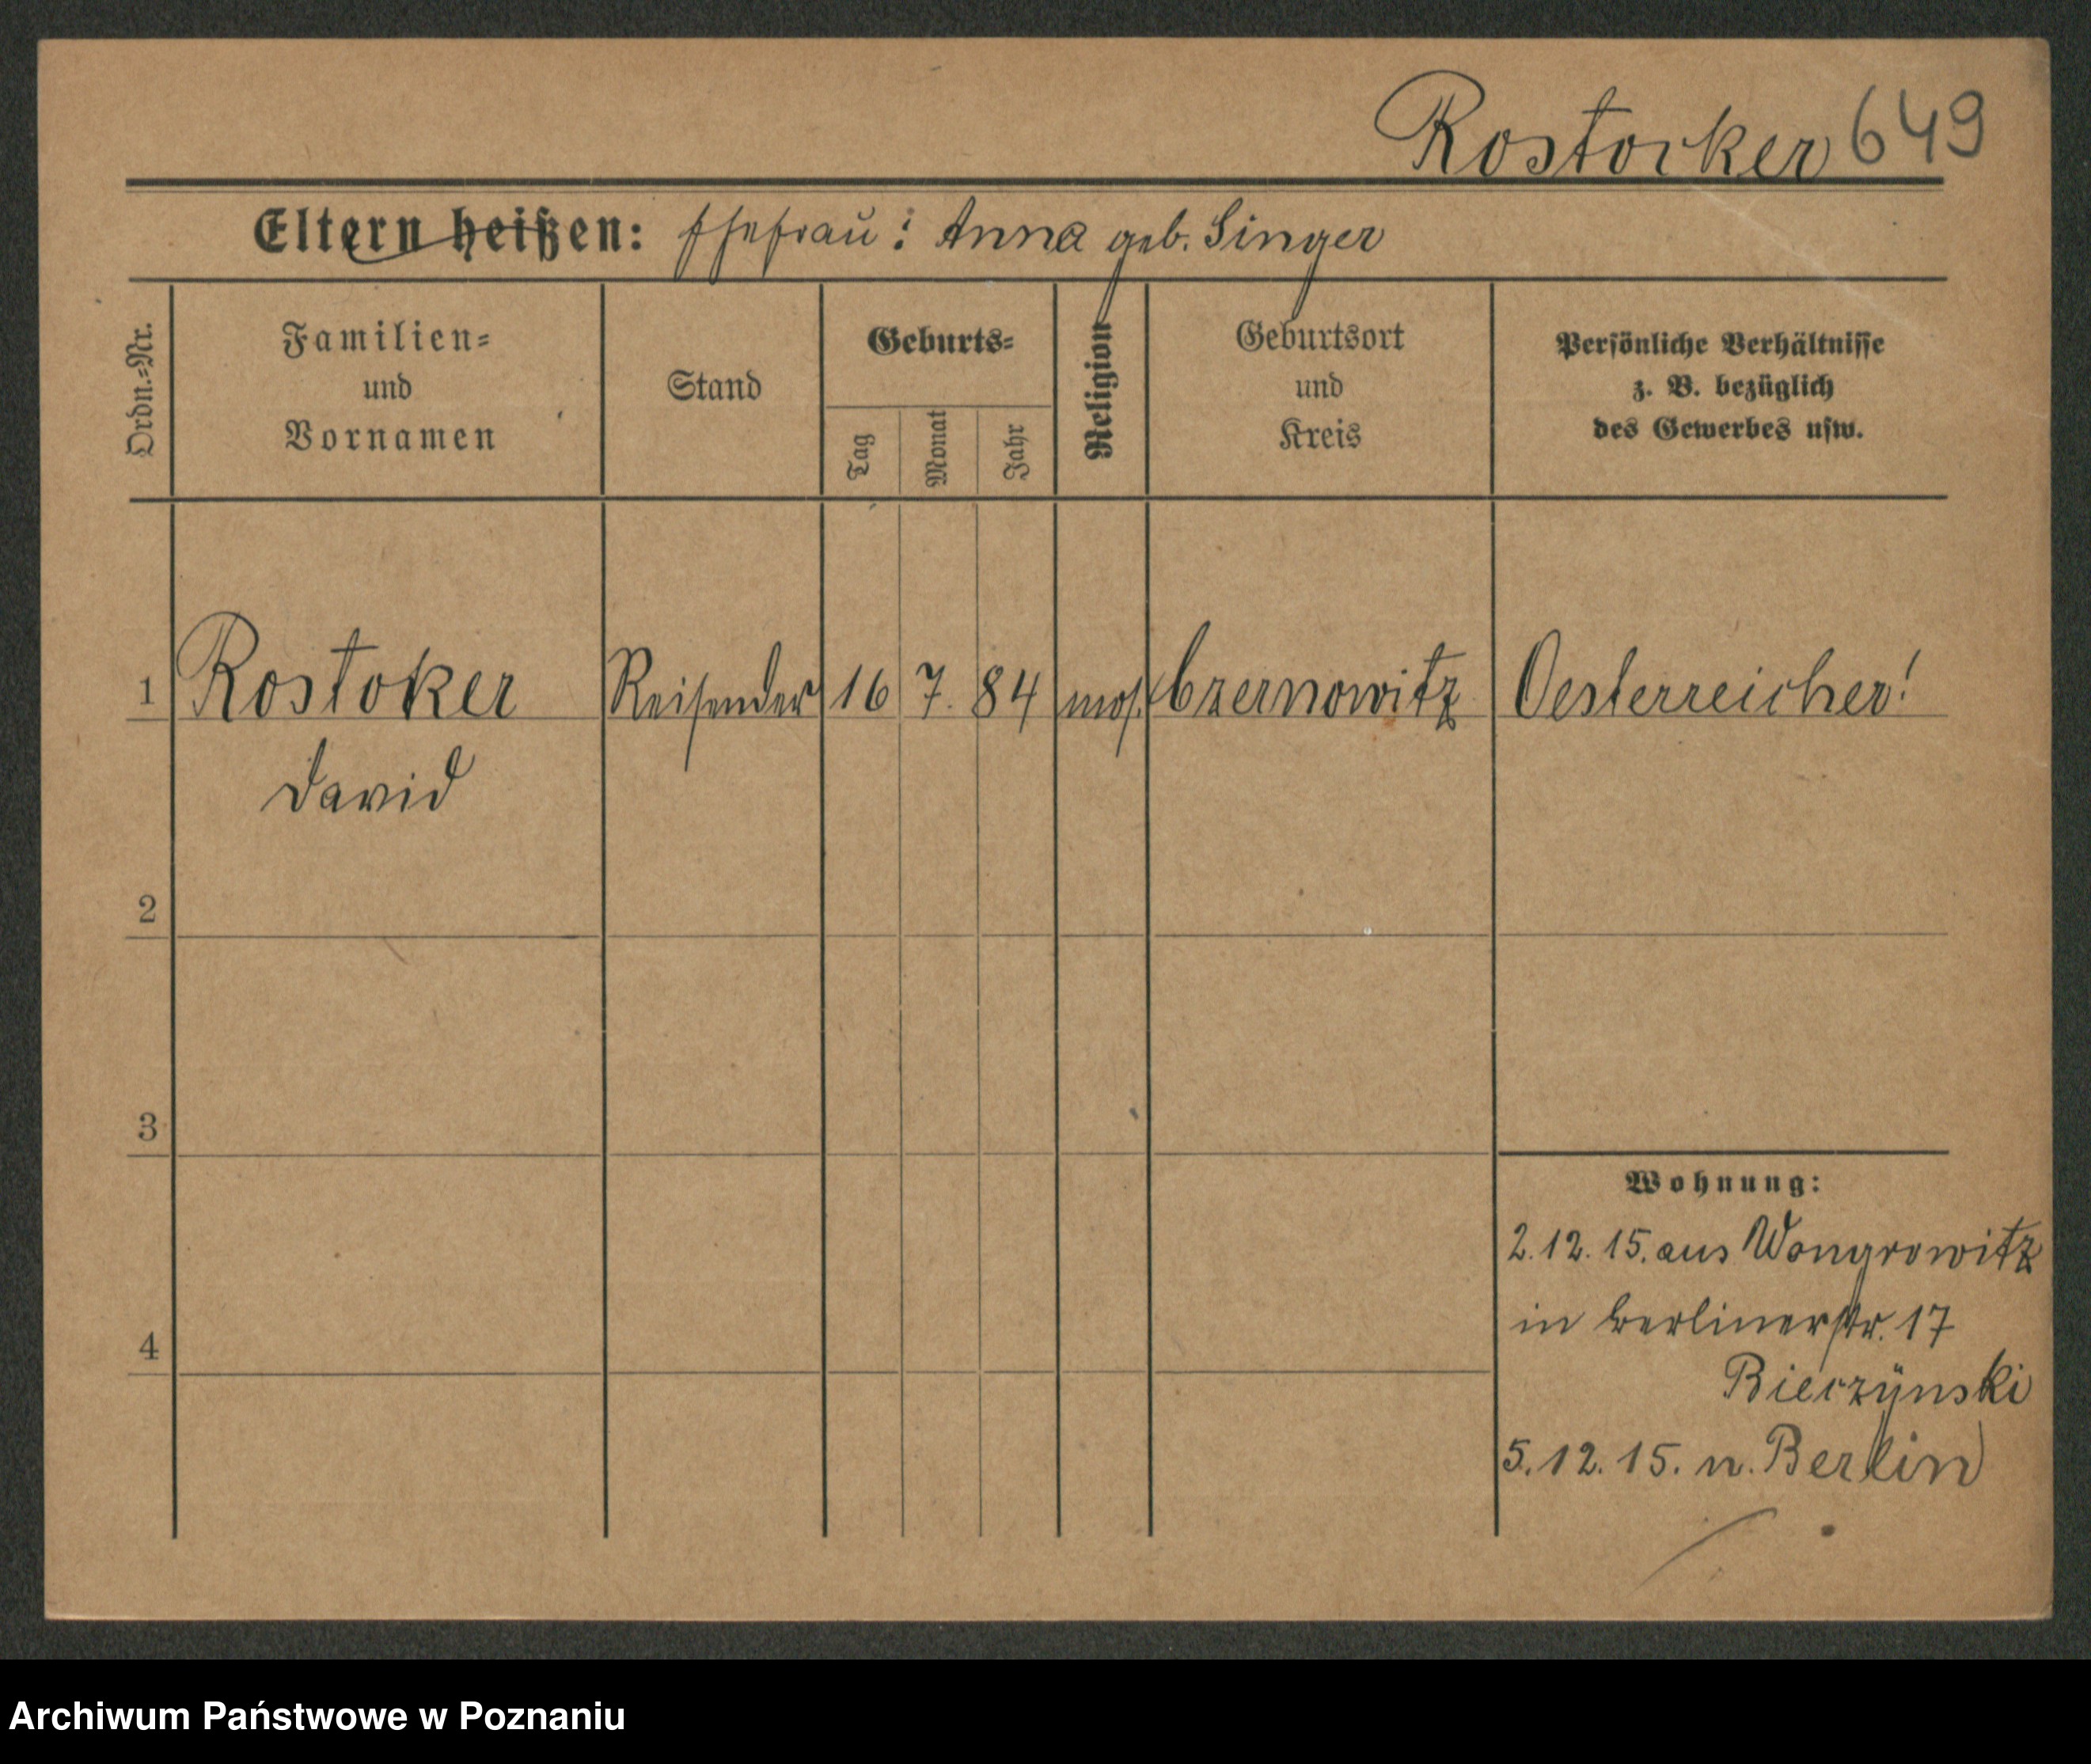 Rostocker 649
Eltern heißen: Ehefrau: Anna geb. Singer
Ordn.=Nr.
Familien=
und
Vornamen
Stand
Geburts=
Tag
Monat
Jahr
Religion
Geburtsort
und
Kreis
Persönliche Verhältnisse
z. B. bezüglich
des Gewerbes usw.
1 Rostoker Reisender 16 7. 84 mos. Czernowitz Oesterreicher!
David
2
3
Wohnung:
2.12.15. aus Wongrowitz
in Berlinerstr. 17
4
Bieczynski
5.12.15. n. Berlin
Archiwum Państwowe w Poznaniu